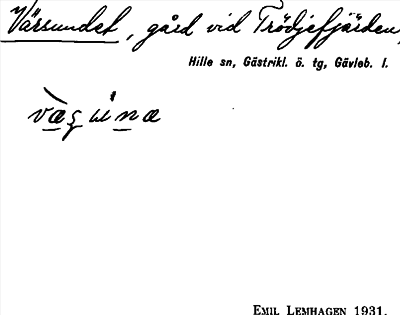 Värsundet, gård vid Trödjefjärden,
Hille sn, Gästrikl. ö. tg, Gävleb. l.
EMIL LEMHAGEN 1931.